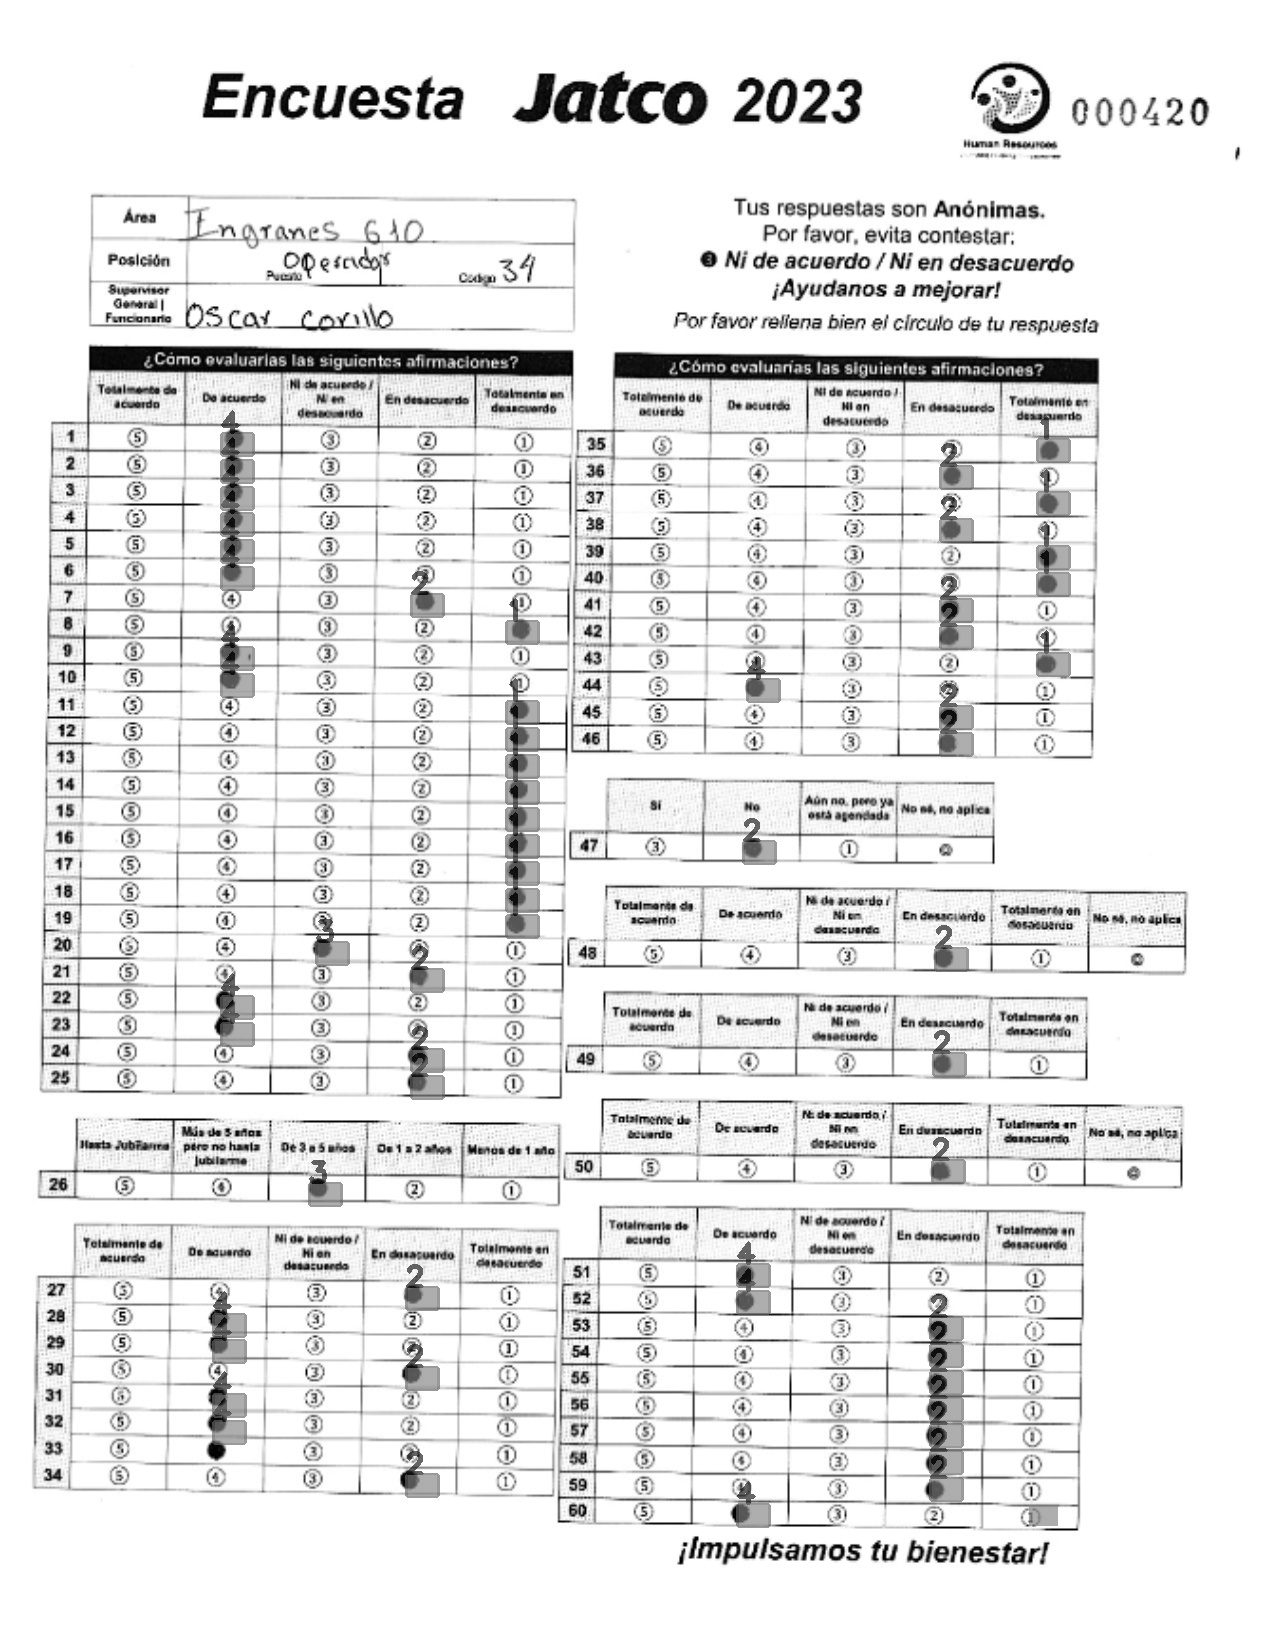 Encuesta Jatco 2023
Human Resources
000420
Área Ingranes 610
Posición Puesto Operador Codigo 34
Supervisor General | Funcionario Oscar Corillo
Tus respuestas son Anónimas.
Por favor, evita contestar:
❸ Ni de acuerdo / Ni en desacuerdo
¡Ayudanos a mejorar!
Por favor rellena bien el círculo de tu respuesta
¿Cómo evaluarías las siguientes afirmaciones?
Totalmente de acuerdo De acuerdo Ni de acuerdo / Ni en desacuerdo En desacuerdo Totalmente en desacuerdo
1 5 4 3 2 1
2 5 4 3 2 1
3 5 4 3 2 1
4 5 4 3 2 1
5 5 4 3 2 1
6 5 3 2 1
7 5 4 3 2 1
8 5 4 3 2 1
9 5 4 3 2 1
10 5 3 2 1
11 5 4 3 2 1
12 5 4 3 2 1
13 5 4 3 2 1
14 5 4 3 2 1
15 5 4 3 2 1
16 5 4 3 2 1
17 5 4 3 2 1
18 5 4 3 2 1
19 5 4 3 2
20 5 4 3 2 1
21 5 4 3 2 1
22 5 4 3 2 1
23 5 4 3 2 1
24 5 4 3 2 1
25 5 4 3 2 1
Hasta Jubilarme Más de 5 años pero no hasta jubilarme De 3 a 5 años De 1 a 2 años Menos de 1 año
26 5 4 3 2 1
Totalmente de acuerdo De acuerdo Ni de acuerdo / Ni en desacuerdo En desacuerdo Totalmente en desacuerdo
27 5 4 3 2 1
28 5 4 3 2 1
29 5 3 2 1
30 5 4 3 2 1
31 5 4 3 2 1
32 5 3 2 1
33 5 3 2 1
34 5 4 3 2 1
¿Cómo evaluarías las siguientes afirmaciones?
Totalmente de acuerdo De acuerdo Ni de acuerdo / Ni en desacuerdo En desacuerdo Totalmente en desacuerdo
35 5 4 3 2 1
36 5 4 3 1
37 5 4 3 2 1
38 5 4 3 1
39 5 4 3 2 1
40 5 4 3 2
41 5 4 3 2 1
42 5 4 3 1
43 5 4 3 2 1
44 5 4 3 2 1
45 5 4 3 2 1
46 5 4 3 2 1
Sí No Aún no, pero ya está agendada No sé, no aplica
47 3 2 1 0
Totalmente de acuerdo De acuerdo Ni de acuerdo / Ni en desacuerdo En desacuerdo Totalmente en desacuerdo No sé, no aplica
48 5 4 3 2 1 0
Totalmente de acuerdo De acuerdo Ni de acuerdo / Ni en desacuerdo En desacuerdo Totalmente en desacuerdo
49 5 4 3 2 1
Totalmente de acuerdo De acuerdo Ni de acuerdo / Ni en desacuerdo En desacuerdo Totalmente en desacuerdo No sé, no aplica
50 5 4 3 2 1 0
Totalmente de acuerdo De acuerdo Ni de acuerdo / Ni en desacuerdo En desacuerdo Totalmente en desacuerdo
51 5 4 3 2 1
52 5 3 2 1
53 5 4 3 2 1
54 5 4 3 2 1
55 5 4 3 2 1
56 5 4 3 2 1
57 5 4 3 2 1
58 5 4 3 2 1
59 5 4 3 1
60 5 4 3 2 1
¡Impulsamos tu bienestar!